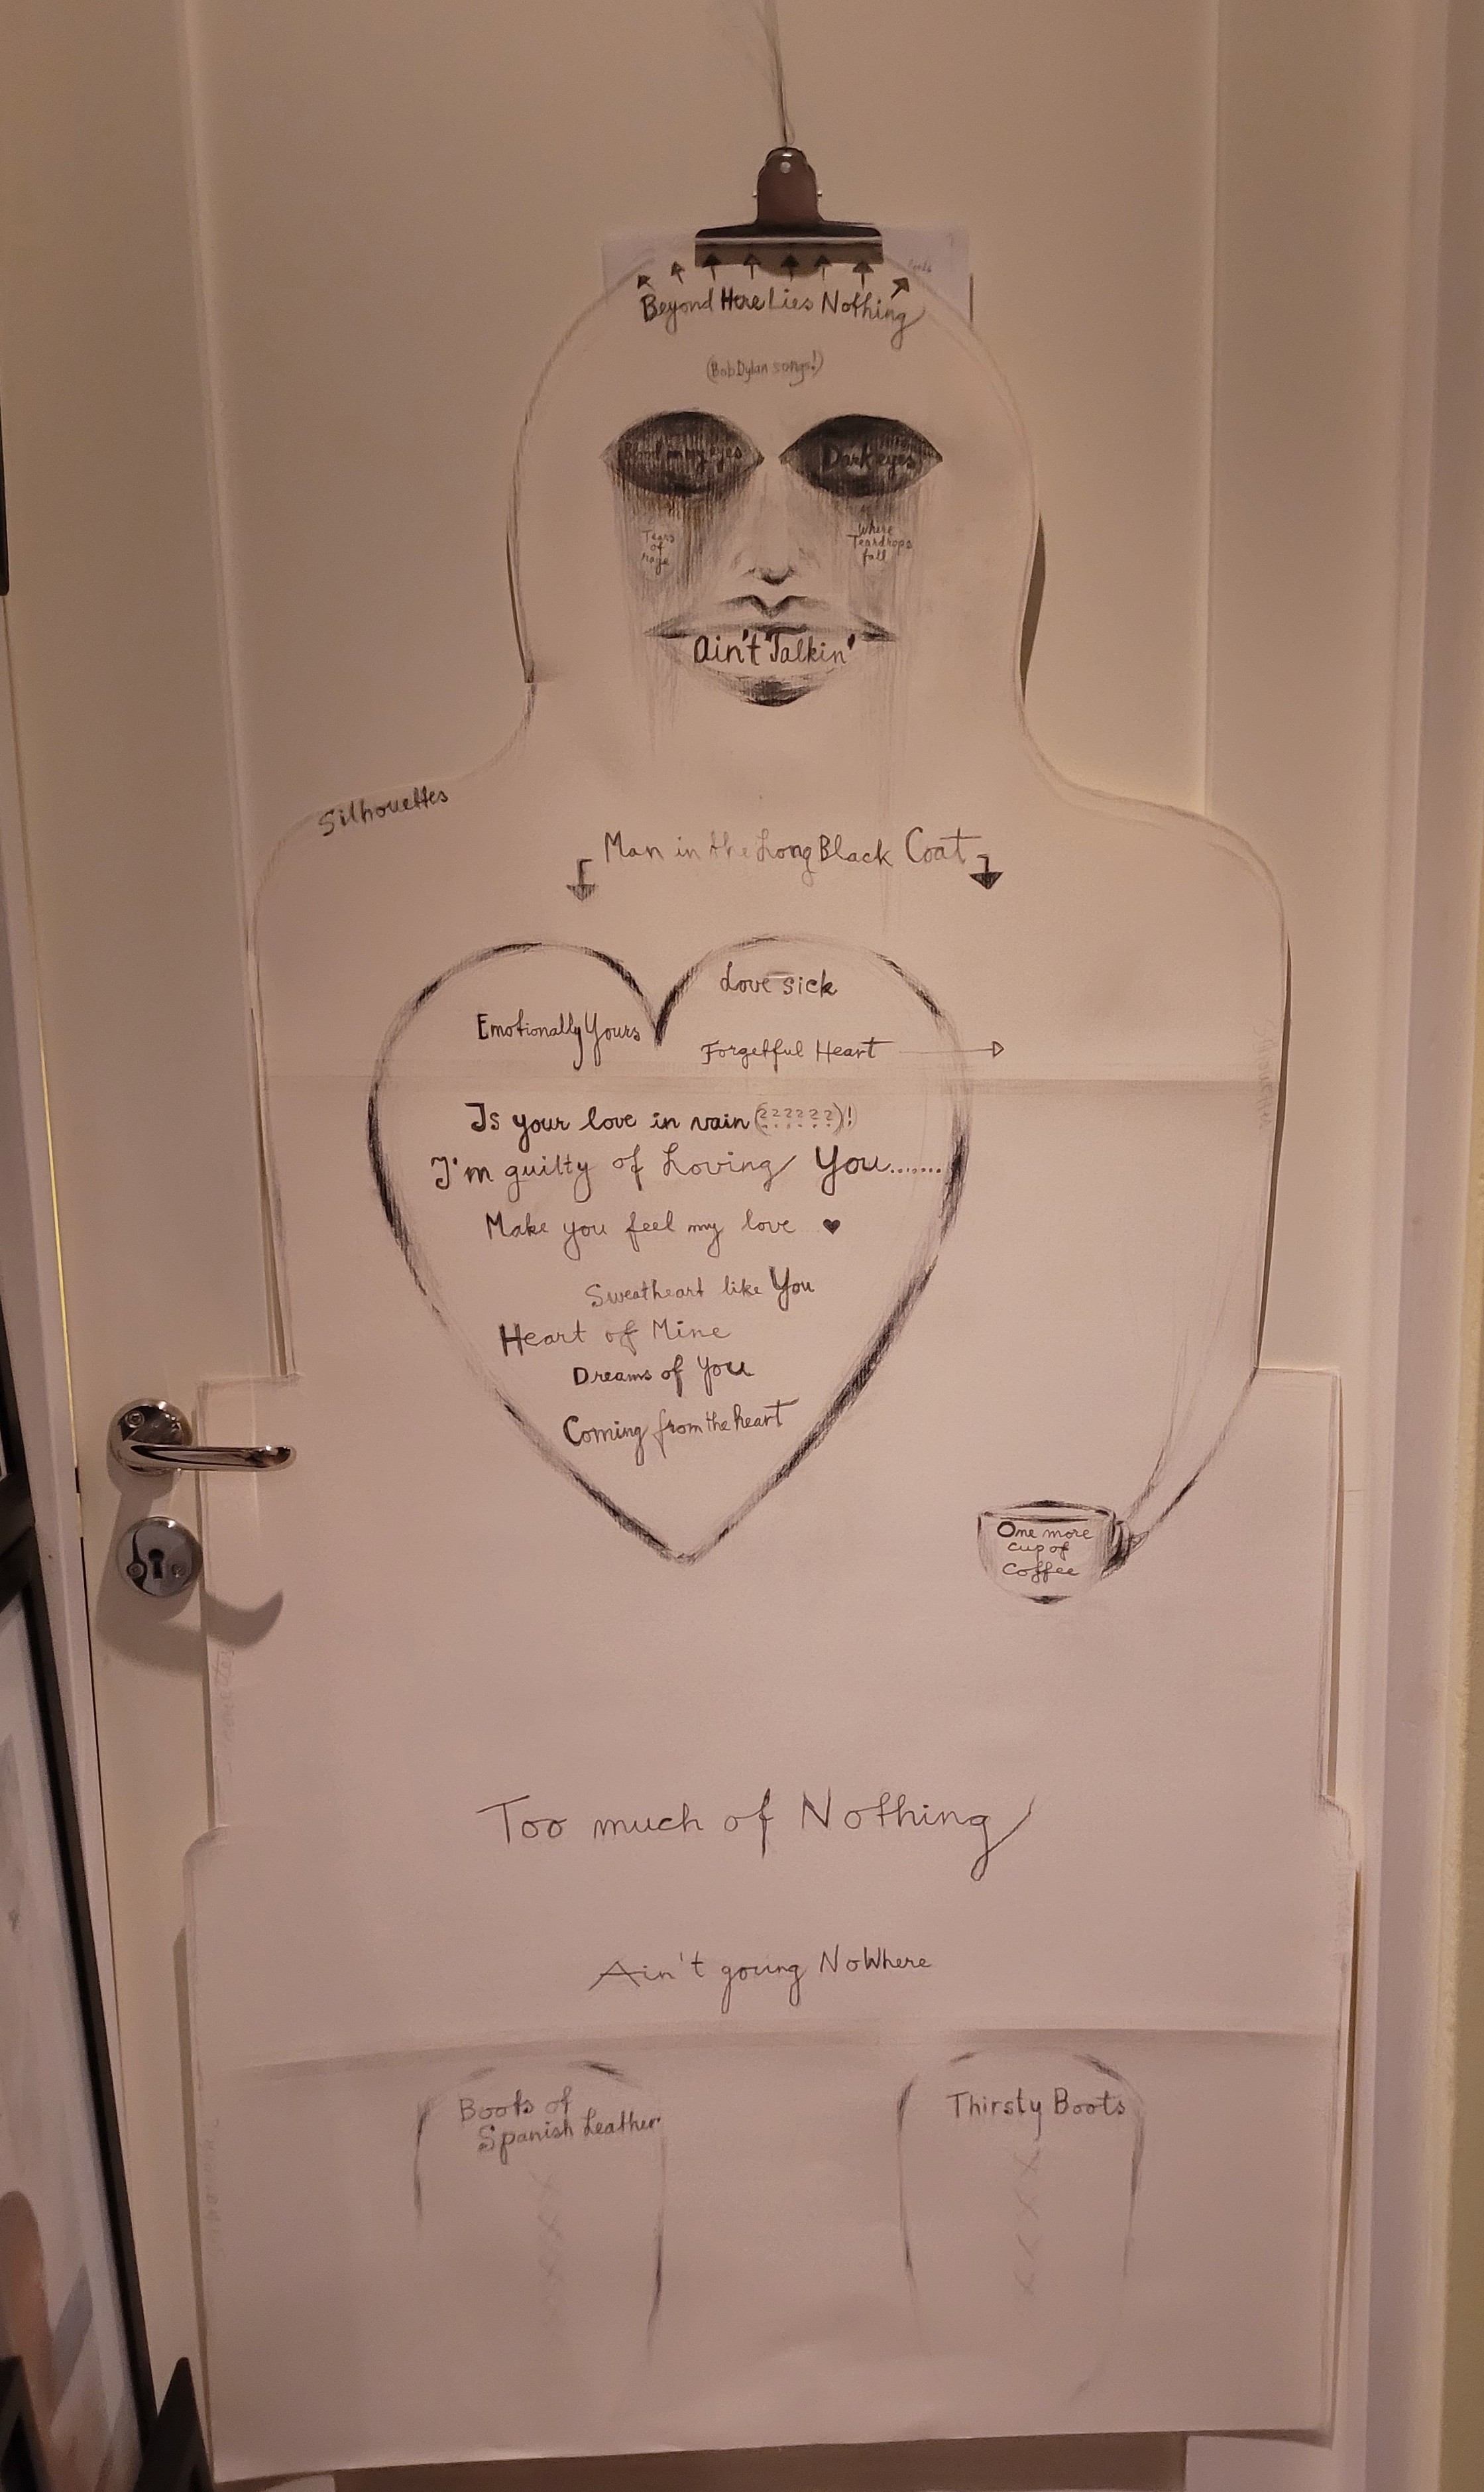 Beyond Here Lies Nothing
(Bob Dylan songs!)
Blood in my eyes
Dark eyes
Tears
of
rage
Where
Teardrops
fall
Ain't Talkin'
Silhouettes
Man in the Long Black Coat
Love sick
Emotionally Yours
Forgetful Heart
Is your love in vain (??????)!
I'm guilty of Loving You.......
Make you feel my love ♥
Sweetheart like You
Heart of Mine
Dreams of You
Coming from the heart
One more
cup of
Coffee
Too much of Nothing
Ain't going NoWhere
Boots of
Spanish Leather
Thirsty Boots